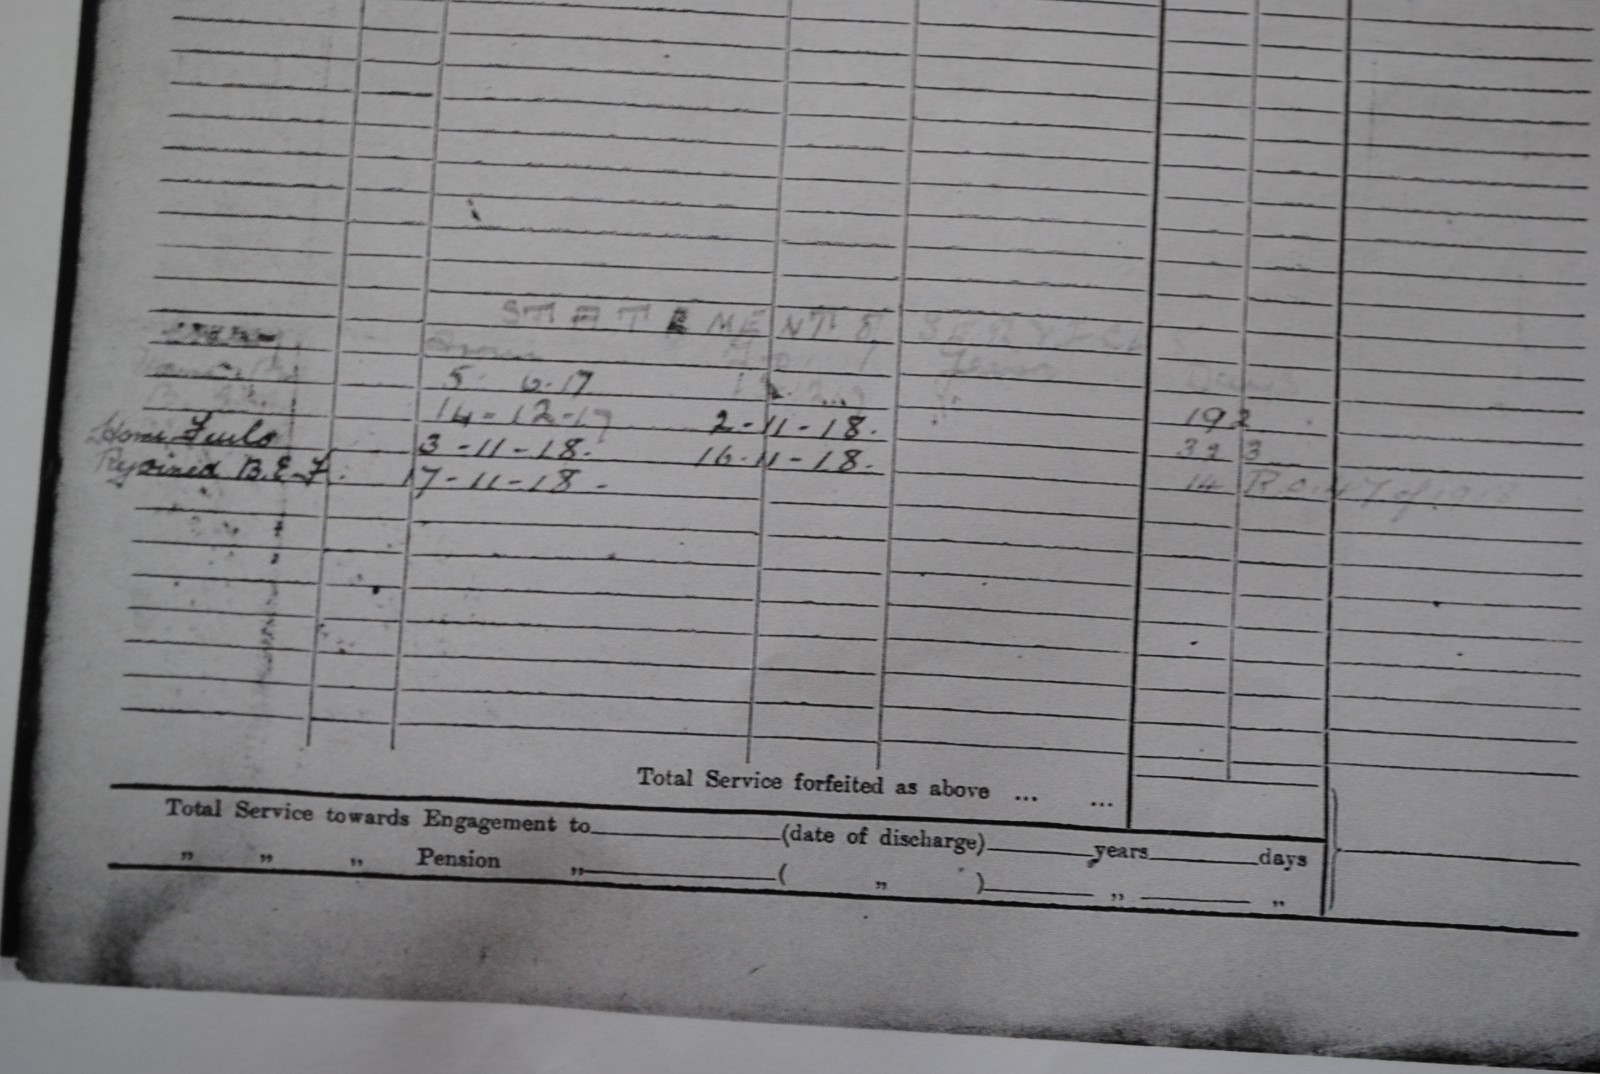 STATEMENT SERVICE
From To Years Days
5 6-17 192
14-12-17 2-11-18. 323
Home Furlo 3-11-18. 16-11-18. 14
Rejoined B.E.F. 17-11-18-
Total Service forfeited as above ... ...
Total Service towards Engagement to (date of discharge) years days
„ „ „ Pension „ ( „ ) „ „